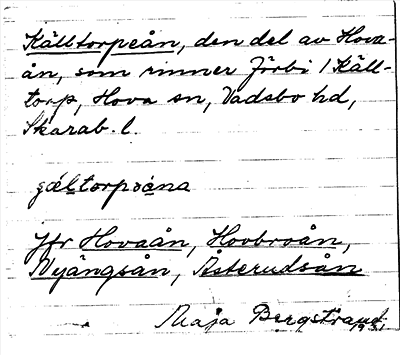 Källtorpeån, den del av Hova-
ån, som rinner förbi 1 Käll-
torp, Hova sn, Vadsbo hd,
Skarab. l.
Jfr Hovaån, Hovbroån,
Nyängsån, Åsterudsån
Maja Bergstrand
1931